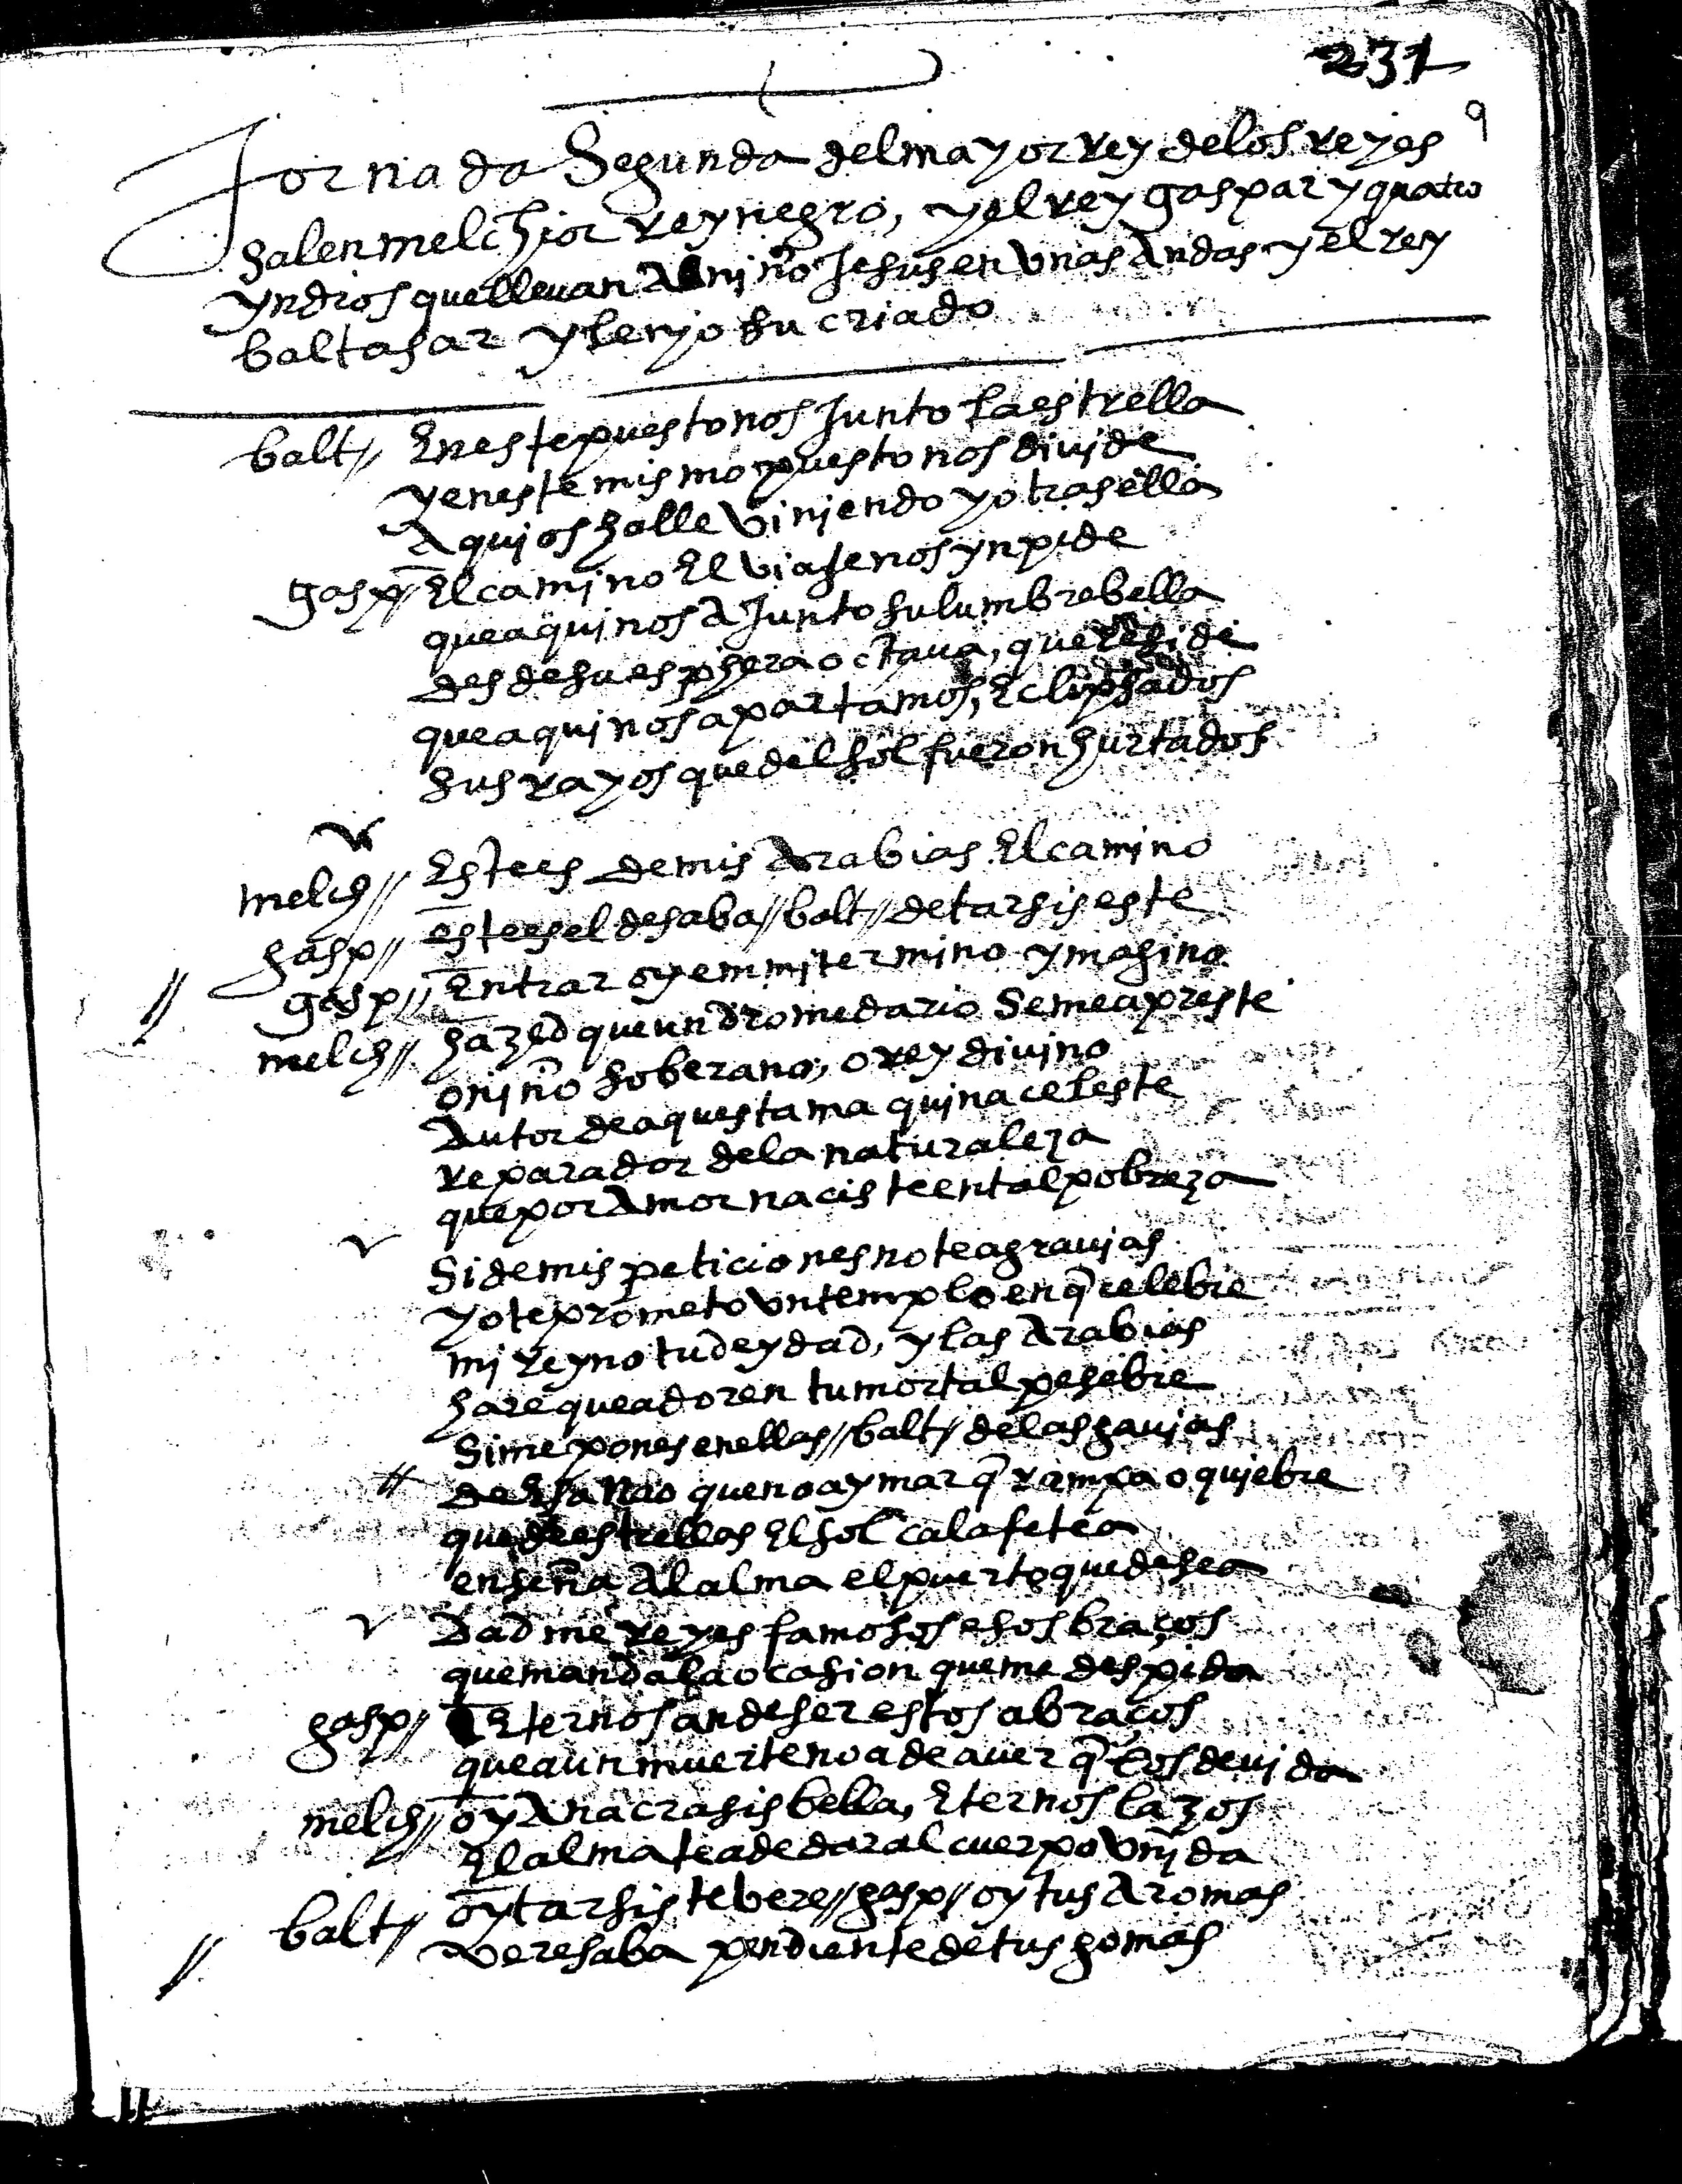 231
9
Jornada Segunda del mayor rey de los reyes
salen melchior rey negro, y el rey gaspar y quatro
yndios que lleuan Al niño Jesus en Vnas Andas y el rey
baltasar y lenjo su criado
balt// En este puesto nos Junto la estrella
y en este mismo puesto nos diuide
Aqui os halle Viniendo yo tras ella
gasp// El camino El viaje nos ynpide
que aqui nos A Junto su lumbre bella
desde su esphera octaua, que reside
que aqui nos apartamos, Eclipsados
sus rayos que del sol fueron hurtados
melch// Este es de mis Arabias El camino
gasp// este es el de saba // balt // de tarsis este
gasp// Entrar oy em mi termino ymagino
melch// hazed que un dromedario Se me apreste
o niño soberano, o rey diuino
Autor de aquesta maquina celeste
reparador de la naturaleza
que por Amor naciste en tal pobreza
Si de mis peticiones no te agrauias
yo te prometo vn templo en q̃ celebre
mi reyno tu deydad, y las Arabias
hare que adoren tu mortal pesebre
Si me pones en ellas // balt // de las gauias
de esa nao que no ay mar q̃ rompa o quiebre
que de estrellas El sol calafetea
enseña Al alma el puerto que desea
Dadme reyes famosos esos braços
que manda la ocasion que me despida
gasp// Eternos an de ser estos abraços
que aun muerte no a de auer q̃ los deuida
melch// oy Anacrasis bella, Eternos lazos
El alma te a de dar al cuerpo Vnida
balt// oy tarsis te vere // gasp // oy tus Aromas
vere saba pendiente de tus gomas